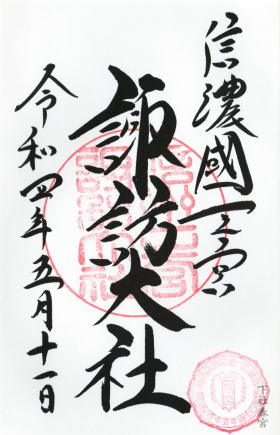 信濃國一之宮
諏訪大社
令和四年五月十一日
下社春宮